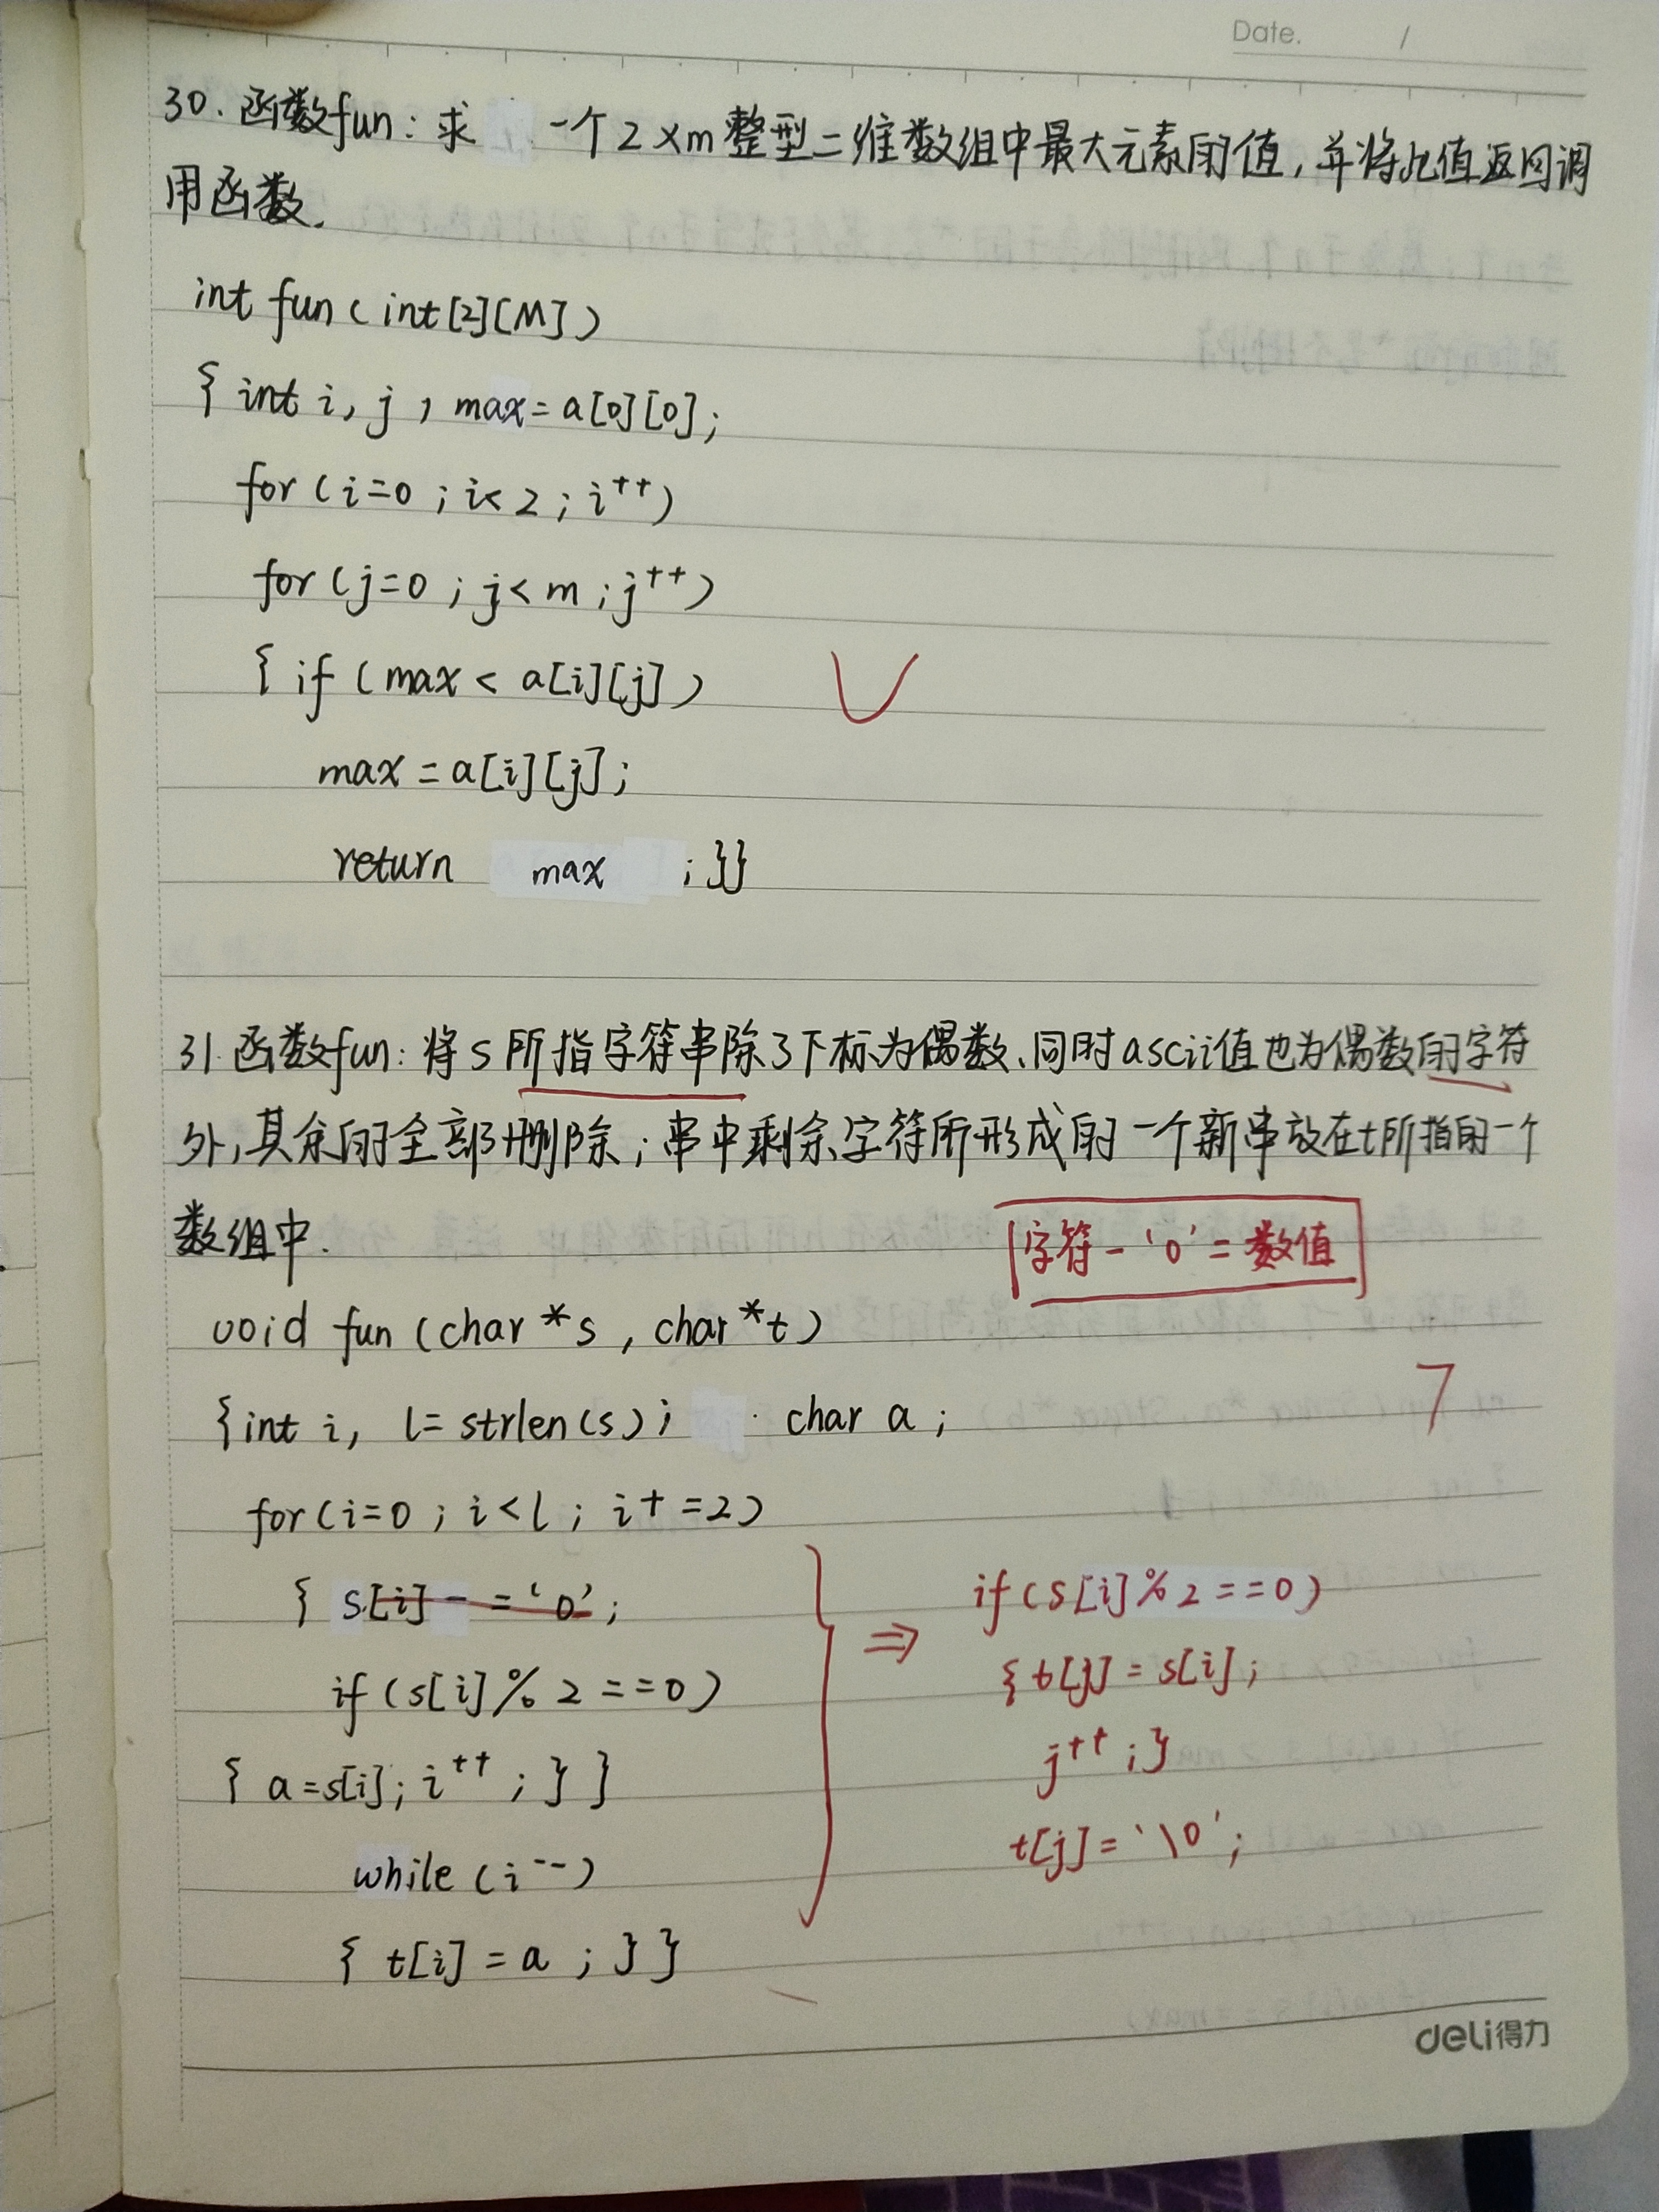 Date. /
30. 函数fun: 求 一个2×m整型二维数组中最大元素的值,并将此值返回调
用函数.
int fun ( int[2][M] )
{ int i, j , max = a[0][0];
for (i=0 ; i<2 ; i++)
for (j=0 ; j<m ; j++)
{ if (max < a[i][j])
max = a[i][j];
return max ; }}
31. 函数fun: 将s所指字符串除了下标为偶数、同时ascii值也为偶数的字符
外,其余的全部删除;串中剩余字符所形成的一个新串放在t所指的一个
数组中.
字符-'0'=数值
void fun (char *s , char *t)
{int i, l= strlen(s); char a ;
for(i=0 ; i<l ; i+=2)
{ s[i] -= '0';
if (s[i]%2==0)
if (s[i] % 2 ==0)
{ t[j] = s[i];
{ a=s[i]; i++ ; } }
j++ ;}
while (i--)
t[j]='\0';
{ t[i] = a ; } }
deli得力